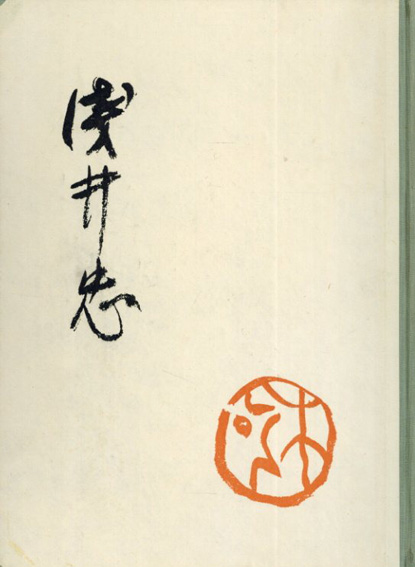 浅井忠